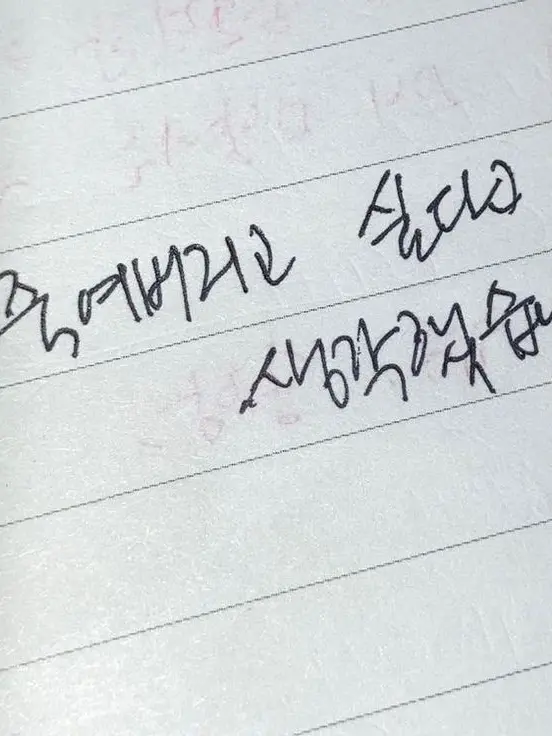 죽여버리고 싶다고
생각했습